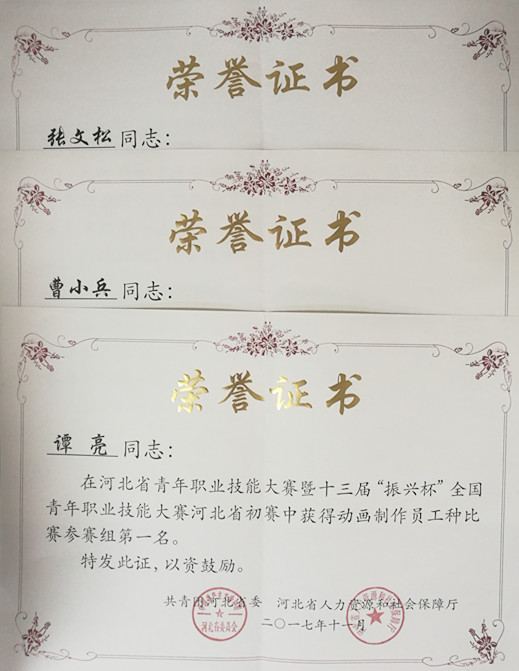 荣誉证书
张文松 同志：
荣誉证书
曹小兵 同志：
荣誉证书
谭亮 同志：
在河北省青年职业技能大赛暨十三届“振兴杯”全国
青年职业技能大赛河北省初赛中获得动画制作员工种比
赛参赛组第一名。
特发此证，以资鼓励。
共青团河北省委 河北省人力资源和社会保障厅
二〇一七年十一月
河北省委员会